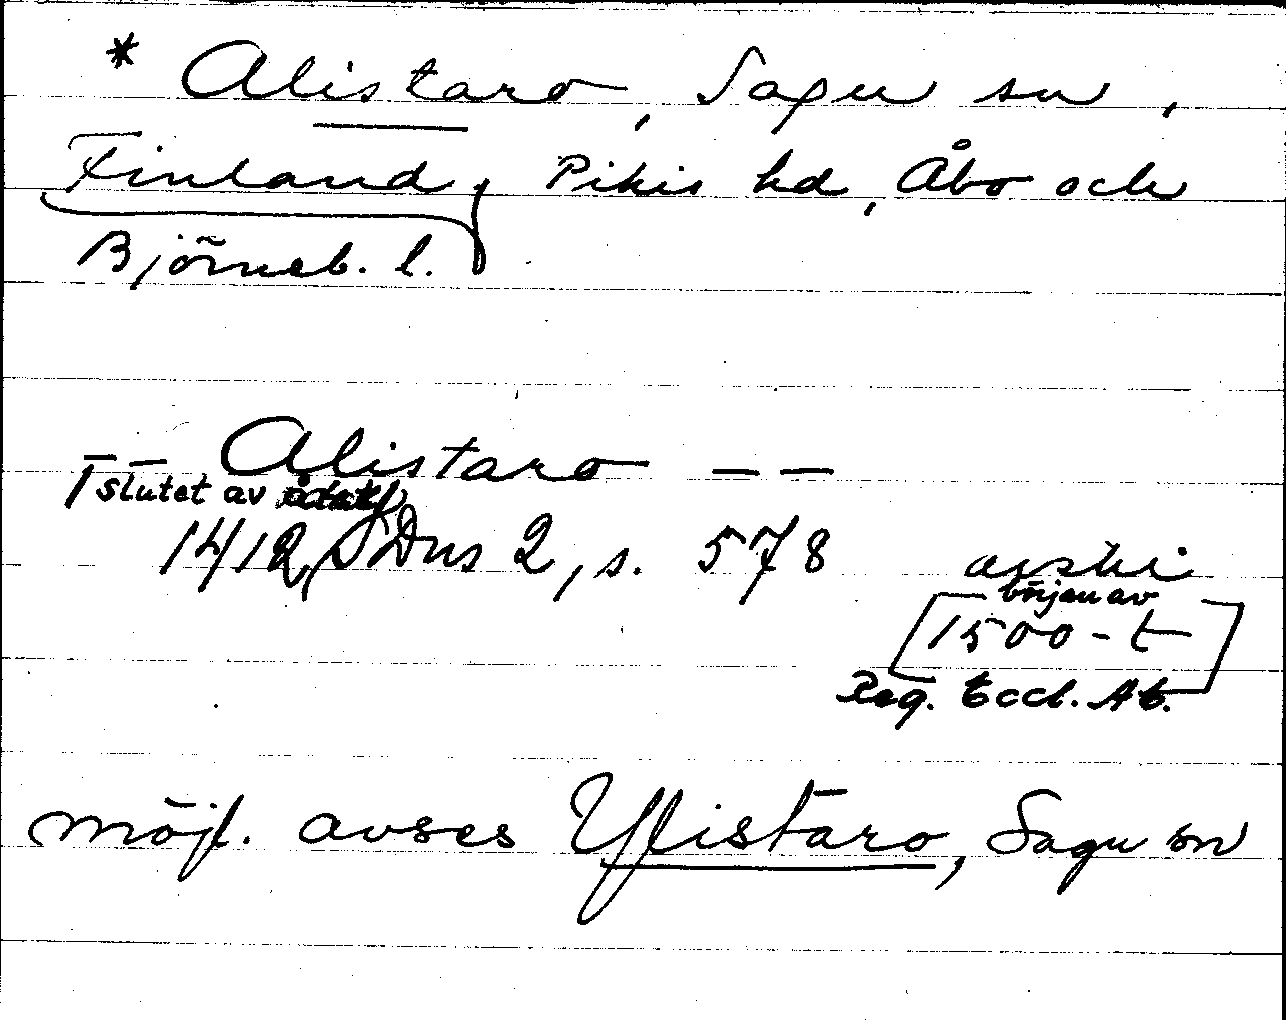 * Alistaro, Sagu sn,
Finland, Pikis hd, Åbo och
Björneb. l.
— — Alistaro — —
slutet av
1412, SDns 2, s. 578 avskr
början av
[1500-t
Reg. Eccl. Ab.]
möjl. avses Ylistaro, Sagu sn